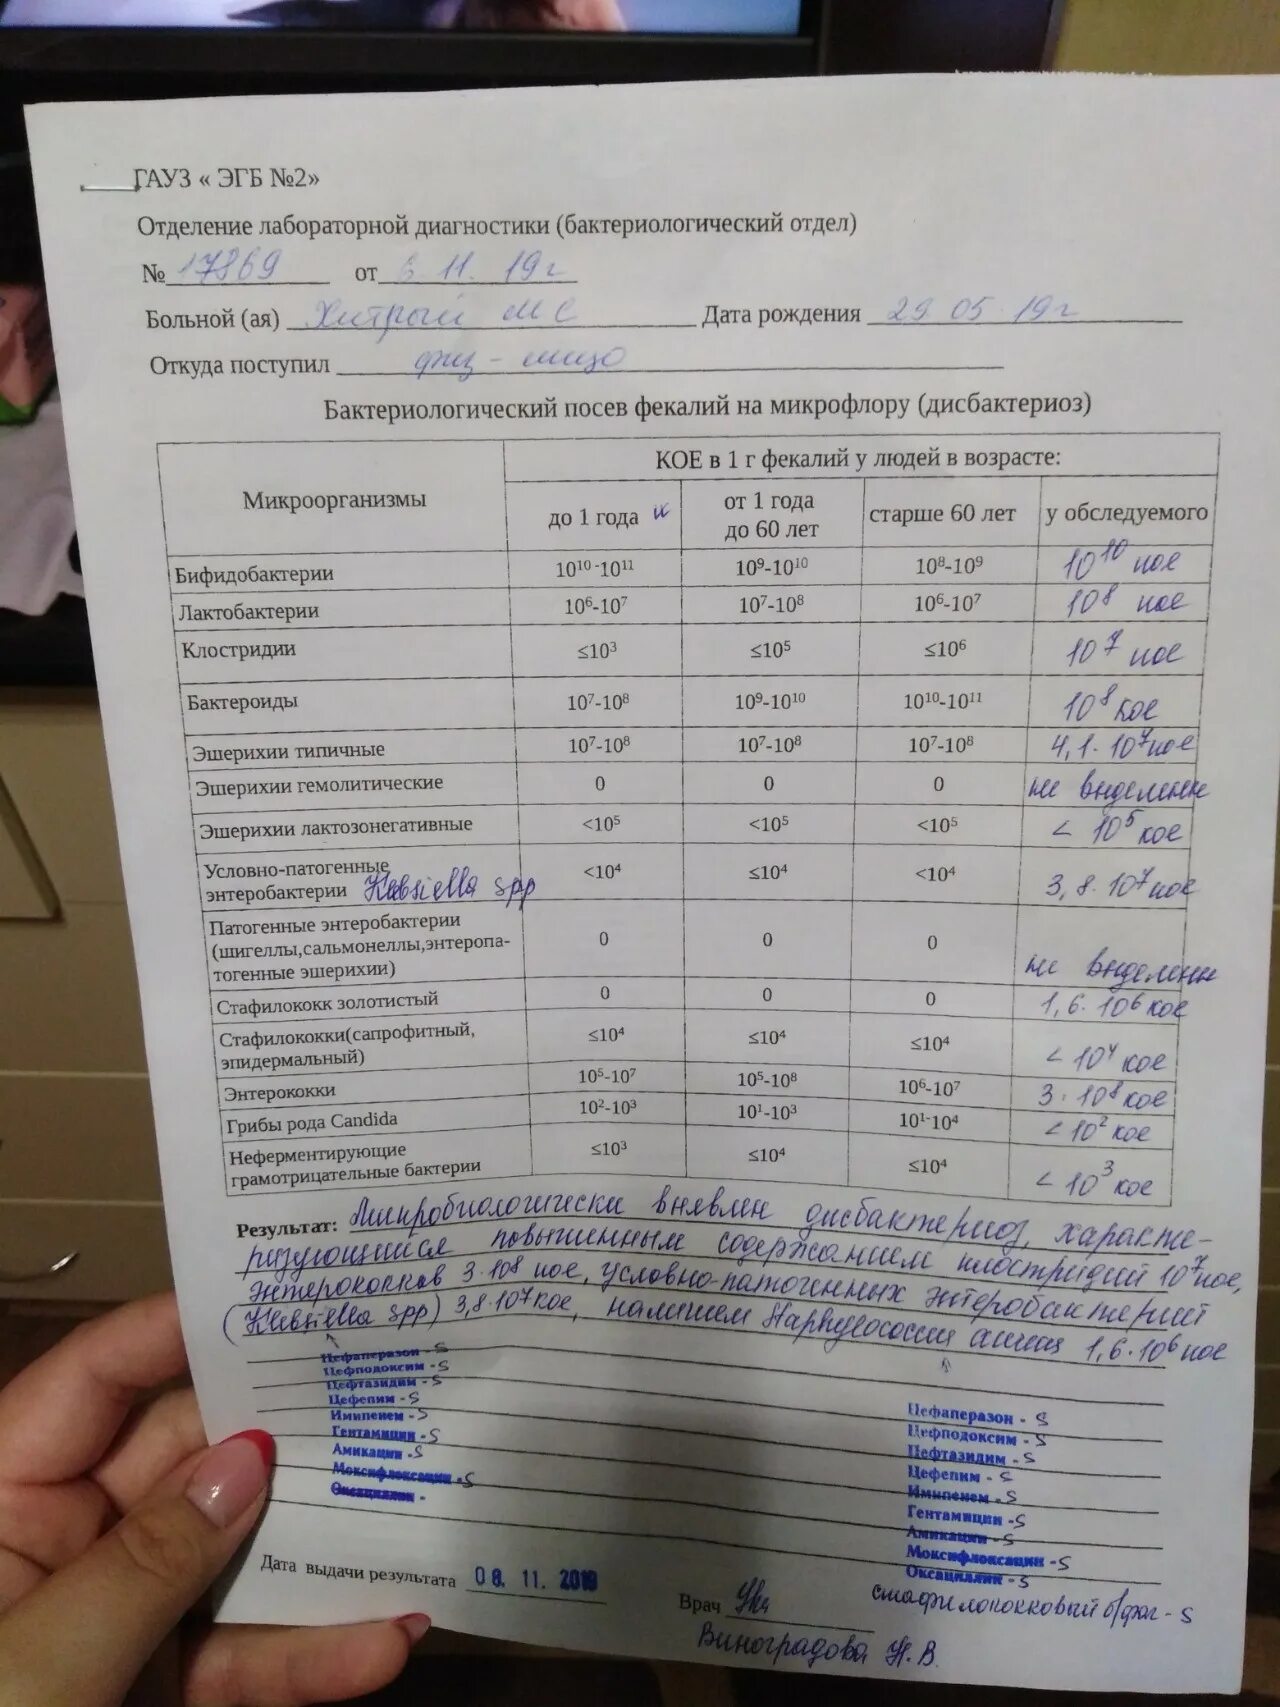 ГАУЗ « ЭГБ №2»
Отделение лабораторной диагностики (бактериологический отдел)
№ 17869 от 6.11.19г
Больной (ая) Хитрый М С Дата рождения 29.05.19г
Откуда поступил физ-лицо
Бактериологический посев фекалий на микрофлору (дисбактериоз)
Микроорганизмы КОЕ в 1 г фекалий у людей в возрасте:
до 1 года от 1 года до 60 лет старше 60 лет у обследуемого
Бифидобактерии 10¹⁰-10¹¹ 10⁹-10¹⁰ 10⁸-10⁹ 10¹⁰ кое
Лактобактерии 10⁶-10⁷ 10⁷-10⁸ 10⁶-10⁷ 10⁸ кое
Клостридии ≤10³ ≤10⁵ ≤10⁶ 10⁷ кое
Бактероиды 10⁷-10⁸ 10⁹-10¹⁰ 10¹⁰-10¹¹ 10⁸ кое
Эшерихии типичные 10⁷-10⁸ 10⁷-10⁸ 10⁷-10⁸ 4,1·10⁷кое
Эшерихии гемолитические 0 0 0 не выделены
Эшерихии лактозонегативные <10⁵ <10⁵ <10⁵ < 10⁵ кое
Условно-патогенные
энтеробактерии Klebsiella spp <10⁴ ≤10⁴ <10⁴ 3,8·10⁷кое
Патогенные энтеробактерии
(шигеллы,сальмонеллы,энтеропа-
тогенные эшерихии) 0 0 0 не выделены
Стафилококк золотистый 0 0 0 1,6·10⁶кое
Стафилококки(сапрофитный,
эпидермальный) ≤10⁴ ≤10⁴ ≤10⁴ < 10⁴ кое
Энтерококки 10⁵-10⁷ 10⁵-10⁸ 10⁶-10⁷ 3·10⁸кое
Грибы рода Candida 10²-10³ 10¹-10³ 10¹-10⁴ <10² кое
Неферментирующие
грамотрицательные бактерии ≤10³ ≤10⁴ ≤10⁴ < 10³ кое
Результат: Микробиологически выявлен дисбактериоз, характе-
ризующийся повышенным содержанием клостридий 10⁷кое,
энтерококков 3·10⁸ кое, условно-патогенных энтеробактерий
(Klebsiella spp) 3,8·10⁷кое, наличием 1,6·10⁶ кое
Цефаперазон - S
Цефподоксим - S
Цефтазидим - S
Цефепим - S
Имипенем - S
Гентамицин - S
Амикацин - S
Моксифлоксацин - S
Оксациллин -
Цефаперазон - S
Цефподоксим - S
Цефтазидим - S
Цефепим - S
Имипенем - S
Гентамицин - S
Амикацин - S
Моксифлоксацин - S
Оксациллин - S
стафилококковый б/фаг - S
Дата выдачи результата 08.11.2019
Врач
Виноградова Н.В.